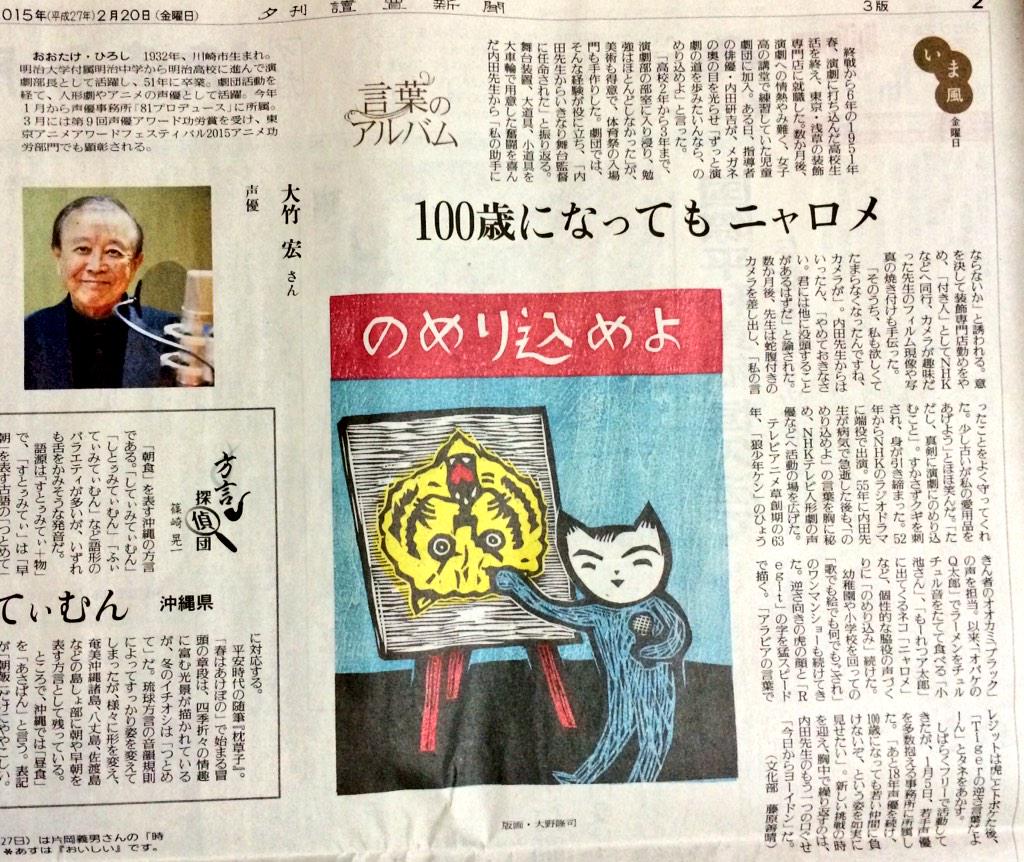 2015年(平成27年)2月20日(金曜日)
夕刊 読売新聞
3版
2
いま風
金曜日
終戦から6年の1951年
春、演劇に打ち込んだ高校生
活を終え、東京・浅草の装飾
専門店に就職した。数か月後、
演劇への情熱やみ難く、女子
高の講堂で練習していた児童
劇団に加入。ある日、指導者
の俳優・内田研吉が、メガネ
の奥の目を光らせ「ずっと演
劇の道を歩みたいんなら、の
めり込めよ」と言った。
「高校2年から3年まで、
演劇部の部室に入り浸り、勉
強はほとんどしなかった」が、
美術も得意で、体育祭の入場
門も手作りした。劇団では、
そんな経験が役に立ち、「内
田先生からいきなり舞台監督
に任命された」と振り返る。
舞台装置、大道具、小道具を
大車輪で用意した奮闘を喜ん
だ内田先生から「私の助手に
言葉の
アルバム
おおたけ・ひろし 1932年、川崎市生まれ。
明治大学付属明治中学から明治高校に進んで演
劇部長として活躍し、51年に卒業。劇団活動を
経て、人形劇やアニメの声優として活躍。今年
1月から声優事務所「81プロデュース」に所属。
3月には第9回声優アワード功労賞を受け、東
京アニメアワードフェスティバル2015アニメ功
労部門でも顕彰される。
大竹 宏さん
声優
100歳になっても ニャロメ
ならないか」と誘われる。意
を決して装飾専門店勤めをや
め、「付き人」としてNHK
などへ同行、カメラが趣味だ
った先生のフィルム現像や写
真の焼き付けも手伝った。
「そのうち、私も欲しくて
たまらなくなったんですね、
カメラが」。内田先生からは
いったん、「やめておきなさ
い。君には他に没頭すること
があるはずだ」と諭された。
数か月後、先生は蛇腹付きの
カメラを差し出し、「私の言
ったことをよく守ってくれ
た。少し古いが私の愛用品を
あげよう」とほほ笑んだ。「た
だし、真剣に演劇にのめり込
むこと」。すかさずクギを刺
され、身が引き締まった。52
年からNHKのラジオドラマ
に端役で出演。55年に内田先
生が病気で急逝した後も、「の
めり込めよ」の言葉を胸に秘
め、NHKテレビ人形劇の声
優などへ活動の場を広げた。
テレビアニメ草創期の63
年、「狼少年ケン」のひょう
きん者のオオカミ「ブラック」
の声を担当。以来、「オバケの
Q太郎」でラーメンをチュル
チュル音をたてて食べる「小
池さん」、「もーれつア太郎」
に出てくるネコ「ニャロメ」
など、個性的な脇役の声づく
りに「のめり込み」続けた。
幼稚園や小学校を回っての
「歌でも絵でも何でもござれ」
のワンマンショーも続けてき
た。逆さ向きの虎の顔と「R
egit」の字を猛スピード
で描く。「アラビアの言葉で
レジットは虎」とトボケた後、
「Tigerの逆さ言葉だよ
ーん」とタネをあかす。
しばらくフリーで活動して
きたが、1月5日、若手声優
を多数抱える事務所に所属し
た。「あと18年声優を続け、
100歳になっても若い仲間に負
けないぞ、という姿を如実に
見せたい」。新しい挑戦の時
を迎え、胸中で繰り返すのは、
内田先生のもう一つの口ぐせ
「今日からヨーイドン」だ。
(文化部 藤原善晴)
のめり込めよ
版画・大野隆司
方言
探偵団
篠崎晃一
「朝食」を表す沖縄の方言
である。「してぃみてぃむん」
「しとぅみてぃむん」「ふぃ
てぃみてぃむん」など語形の
バラエティが多いが、いずれ
も舌をかみそうな発音だ。
語源は「すとぅみてぃ+物」
で、「すとぅみてぃ」は「早
朝」を表す古語の「つとめて」
てぃむん 沖縄県
に対応する。
平安時代の随筆『枕草子』。
「春はあけぼの」で始まる冒
頭の章段は、四季折々の情趣
に富む光景が描かれている
が、冬のイチオシは「つとめ
て」だ。琉球方言の音韻規則
によってすっかり姿を変えて
しまったが、様々に形を変え、
奄美沖縄諸島、八丈島、佐渡島
などの島しょ部に朝や早朝を
表す方言として残っている。
ところで、沖縄では「昼食」
を「あさばん」と言う。表記
27日)は片岡義男さんの「時
*あすは『おいしい』です。